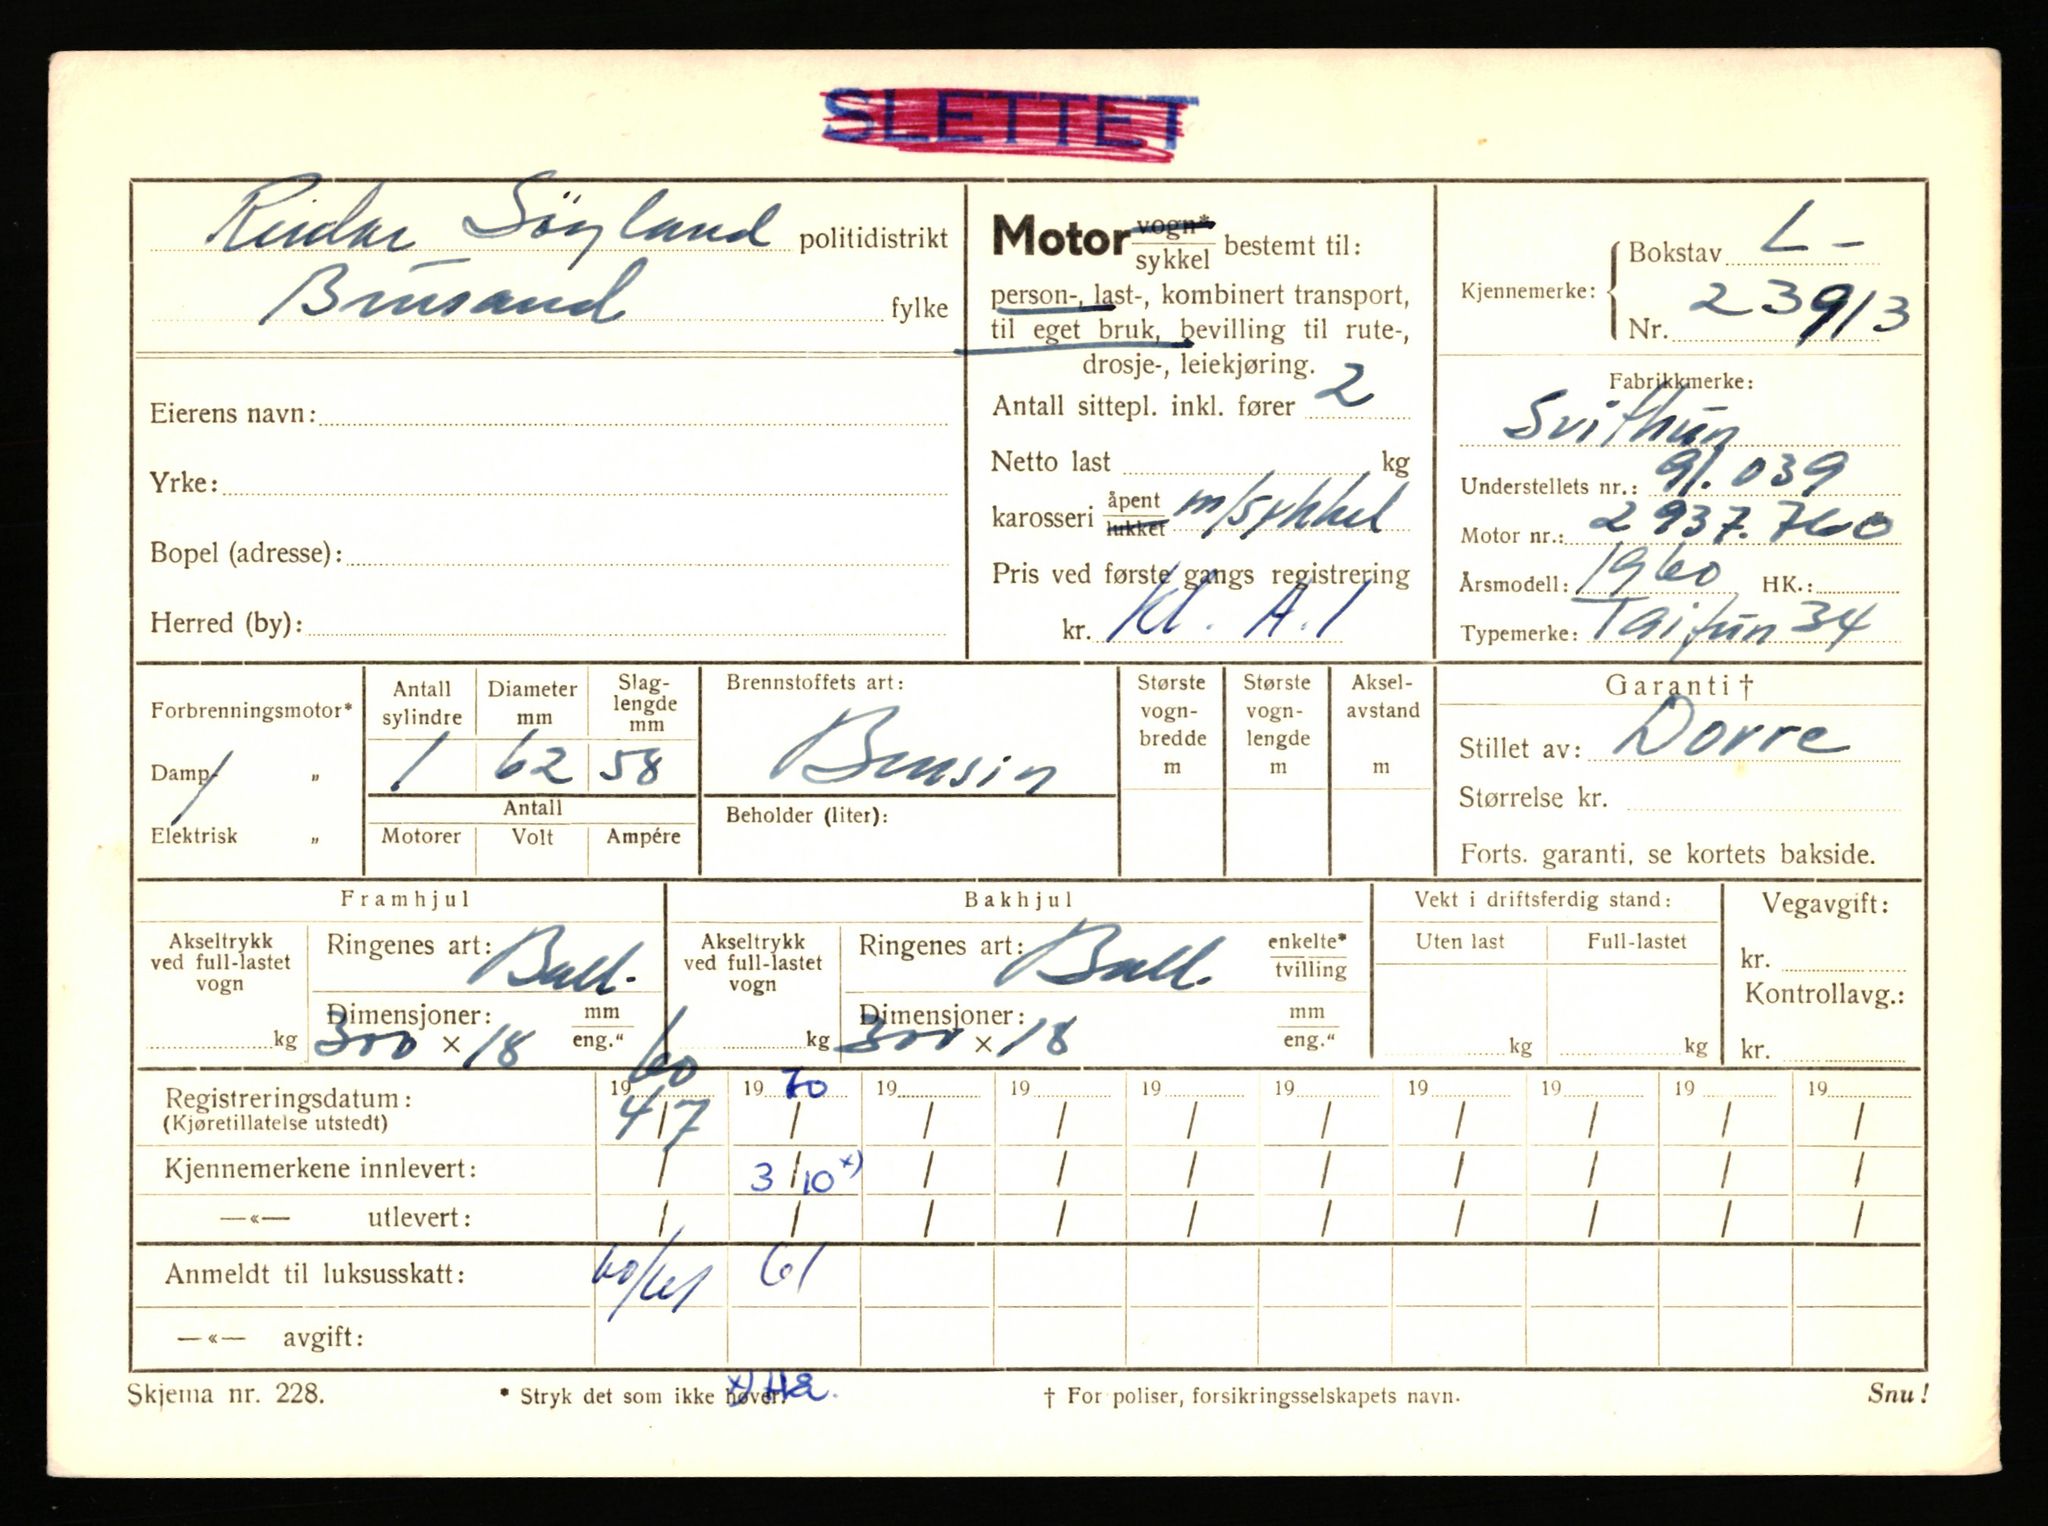 SLETTET
Reidar Söyland politidistrikt
Brusand fylke
Eierens navn:
Yrke:
Bopel (adresse):
Herred (by):
Motor vogn* / sykkel bestemt til:
person-, last-, kombinert transport,
til eget bruk, bevilling til rute-,
drosje-, leiekjøring.
Antall sittepl. inkl. fører 2
Netto last kg
karosseri åpent / lukket m/sykkel
Pris ved første gangs registrering
kr. Kl. A.1
Kjennemerke: Bokstav L-
Nr. 23913
Fabrikkmerke:
Svithun
Understellets nr.: 91.039
Motor nr.: 2937.760
Årsmodell: 1960 HK.:
Typemerke: Taifun 34
Forbrenningsmotor*
Damp- „
Elektrisk „
Antall sylindre
1
Diameter mm
62
Slag-
lengde
mm
58
Antall
Motorer Volt Ampére
Brennstoffets art:
Bensin
Beholder (liter):
Største
vogn-
bredde
m
Største
vogn-
lengde
m
Aksel-
avstand
m
Garanti †
Stillet av: Dovre
Størrelse kr.
Forts. garanti, se kortets bakside.
Framhjul
Akseltrykk
ved full-lastet
vogn
kg
Ringenes art: Ball.
Dimensjoner: mm / eng.“
300 × 18
Bakhjul
Akseltrykk
ved full-lastet
vogn
kg
Ringenes art: Ball. enkelte* / tvilling
Dimensjoner: mm / eng.“
300 × 18
Vekt i driftsferdig stand:
Uten last Full-lastet
kg kg
Vegavgift:
kr.
Kontrollavg.:
kr.
Registreringsdatum: 1960 1970 19 19 19 19 19 19 19 19
(Kjøretillatelse utstedt) 4/7 / / / / / / / / /
Kjennemerkene innlevert: / 3/10 x) / / / / / / / /
—«— utlevert: / / / / / / / / / /
Anmeldt til luksusskatt: 60/61 61
—«— avgift:
Skjema nr. 228. * Stryk det som ikke høver. x) Hå. † For poliser, forsikringsselskapets navn. Snu!